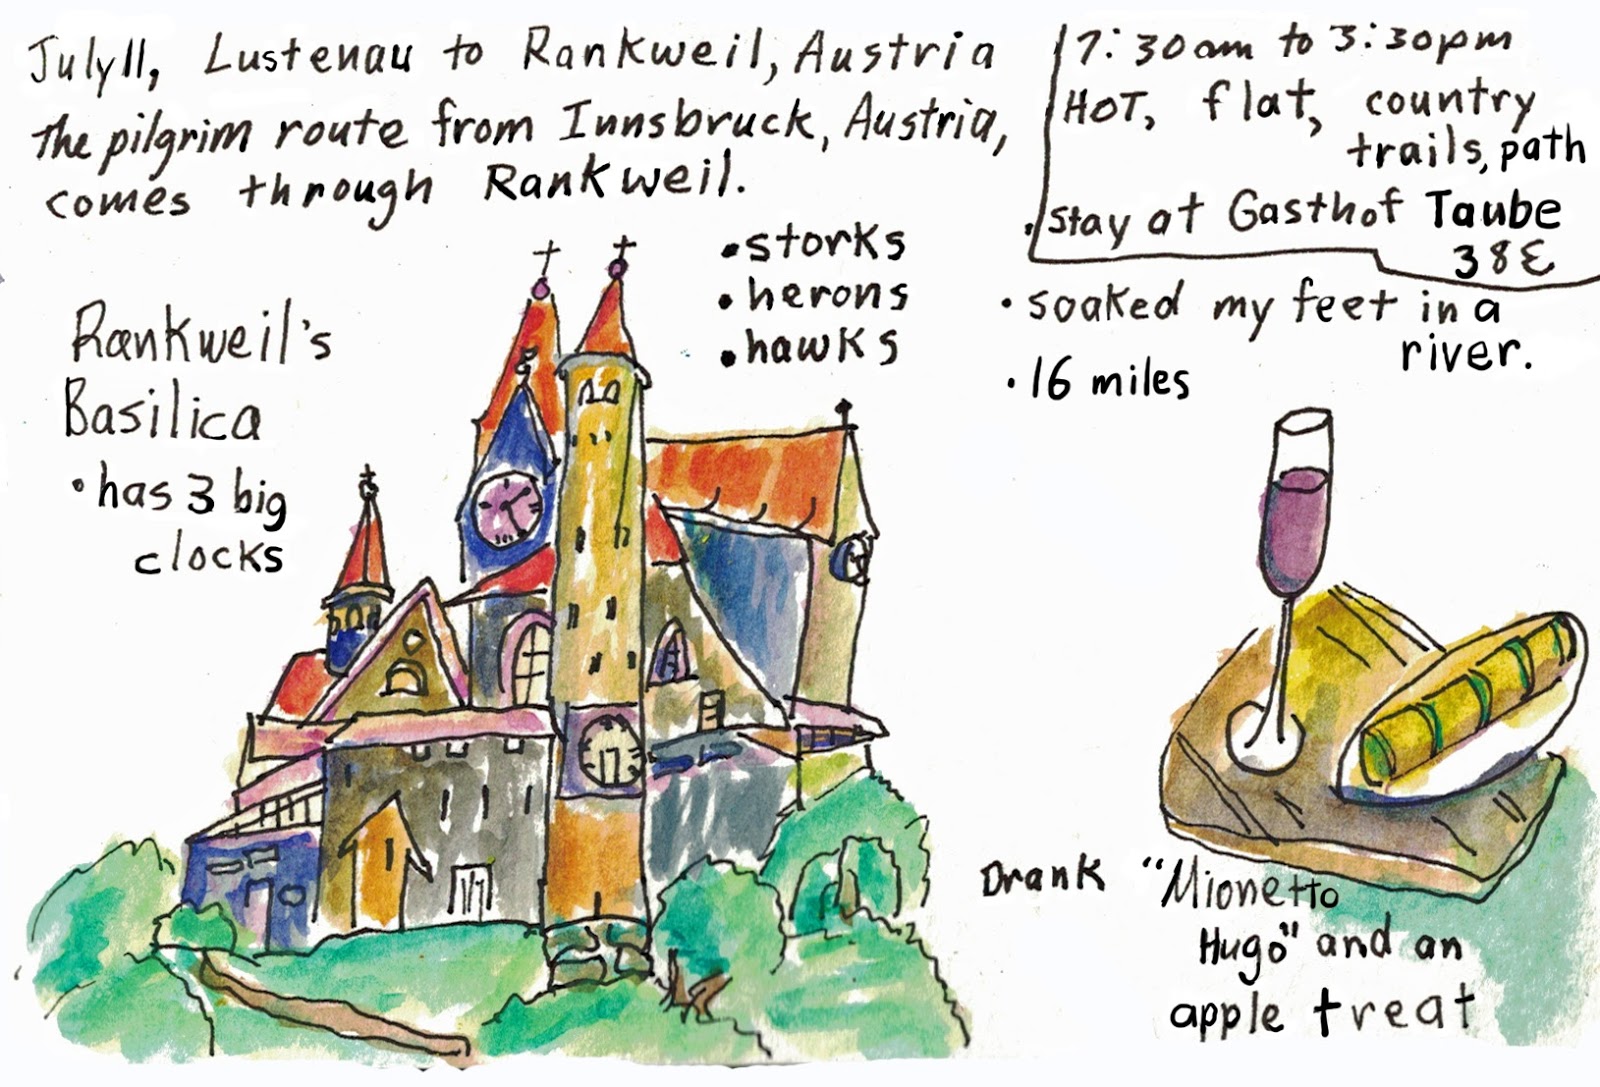 July 11, Lustenau to Rankweil, Austria
the pilgrim route from Innsbruck, Austria,
comes through Rankweil.
7:30am to 3:30pm
HOT, flat, country
trails, path
• stay at Gasthof Taube
38€
• storks
• herons
• hawks
• soaked my feet in a
river.
• 16 miles
Rankweil's
Basilica
• has 3 big
clocks
Drank "Mionetto
Hugo" and an
apple treat